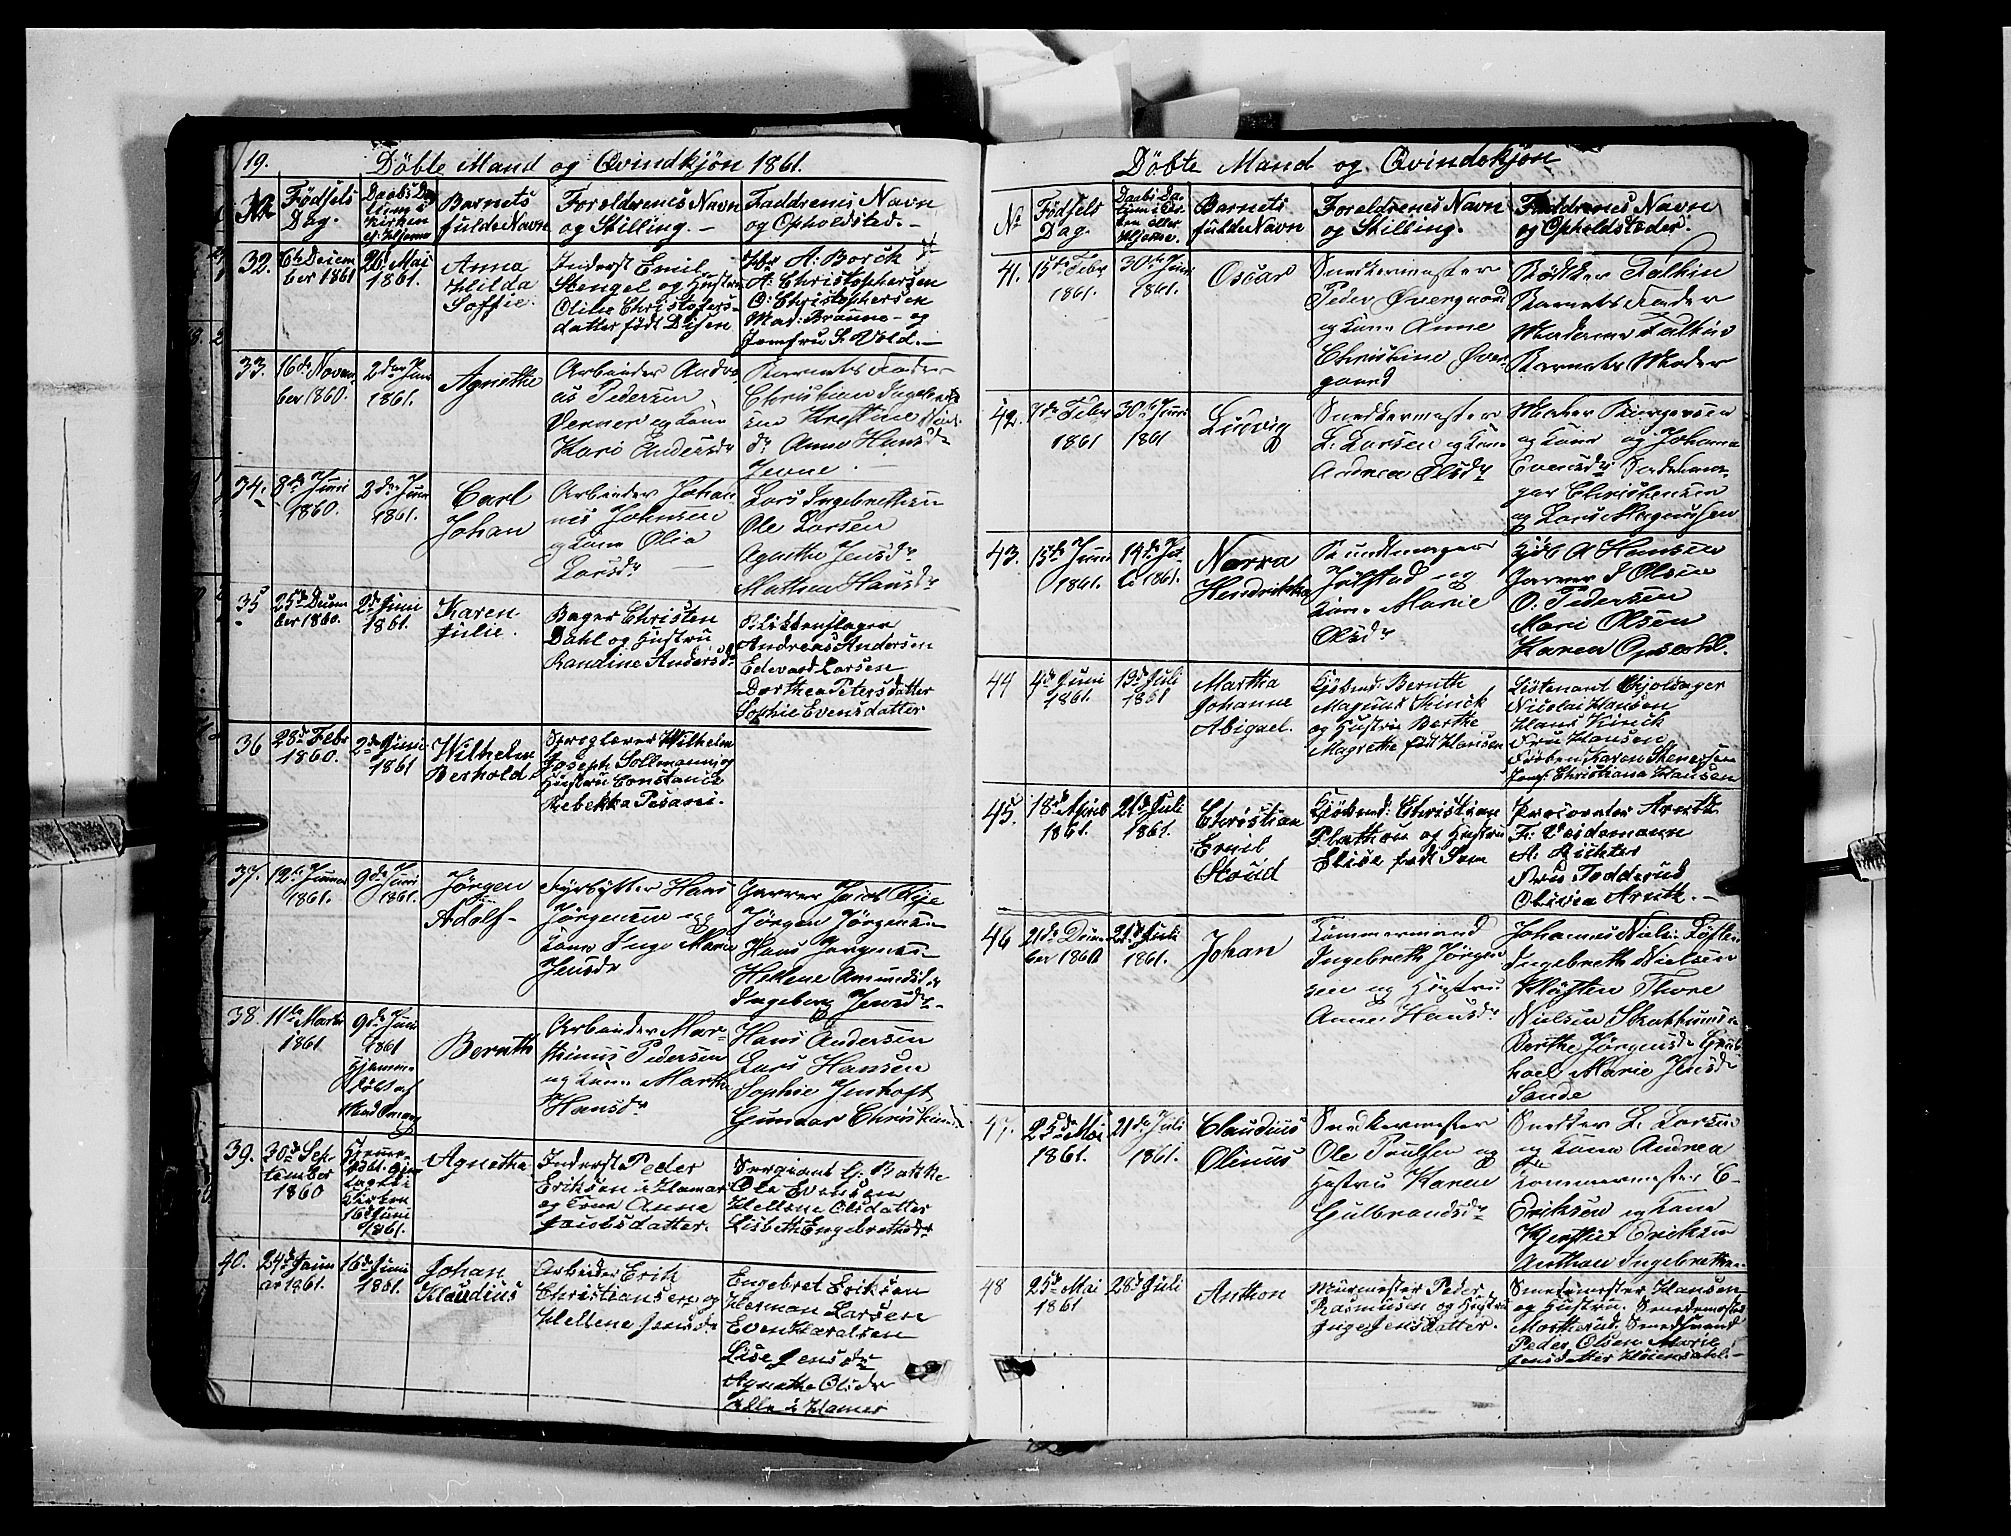 19.
Döbte Mand og Qvindkjön 1861.
No
Födsels
Dag.
Daabs Da-
Kirken
Barnets
fulde Navn
Foreldrenes Navn
og Stilling. -
Faddrenes Navn
og Opholdsted. -
32.
6te Decem
ber 1861
26de Mai
1861.
Anna
Hilda
Soffie.
Inderst Emil
Stengel og Hustru
Oline Christofers-
datter född Disen
A. Borch
A. Christophersen
O. Christophersen
Mad: Braune - og
Jomfru S. Vold. -
33.
16de Novem
ber 1860.
2den Juni
1861.
Agnethe
Arbeider Andre
as Pedersen
og Kone
Kari Andersdr
Barnets Fader
Christian Ingebret
sen Kristine
dr Anne Hansdr
Jevne. -
34.
8de Juni
1860.
2den Juni
1861.
Carl
Johan
Arbeider Johan
nes Johnsen
og Kone Olia
Larsdr
Lars Ingebrethsen
Ole Larsen
Agnethe Jensdr
Mathea Hansdr
35
25de Decem
ber 1860.
2de Juni
1861.
Karen
Julie.
Bager Christen
Dahl og Hustru
Randine Andersdr
Blikkenslager
Andreas Andersen
Edevard Larsen
Dorthea Petersdatter
Sophie Evensdatter
36
28de Febr
1860.
2de Juni
1861
Wilhelm
Berhold
Sproglærer Wilhelm
Joseph Soltmann og
Hustru Constance
Rebekka Pisani.
37.
12te Januar
1861.
9de Juni
1861.
Jörgen
Adolf-
Fyrbytter Hans
Jörgensen og
Kone Inge Marie
Jensdr
Garver Jacob Gje
Jörgen Jörgensen
Hans Jörgensen
Helene Amundsdr
Ingeborg Jensdr -
38.
11te Marts
1861.
9de Juni
1861
Hjemme-
döbt af
Bernth
Arbeider Mar-
thinus Pedersen
og Kone Marthe
Hansdr
Hans Andersen
Lars Hansen
Sophie Imhoft
Gunnar Christiansen
39.
30de Sep-
tember
1860
Hjemme-
döbt.
Kirken
16de Juni
1861.
Agnethe
Inderst Peder
Eriksen i Hamar
og Kone Anne
Jacobsdatter.
Sergiant G. Bakke
Ole Evensen
Hellene Olsdatter
Lisbeth Engebrethsdr
40.
24de Janu
ar 1861.
16de Juni
1861.
Johan
Klaudius
Arbeider Erik
Christiansen og
Hellene Jensdr
Engebret Eriksen
Herman Larsen
Even Haralsen
Lise Jensdr
Agnethe Olsdr
alle i Hamar
Döbte Mand og Qvindekjön
No
Födsels
Dag.
Daabs Da-
Hjemme.
Barnets
fulde Navn
Foreldrenes Navn
og Stilling.
Faddrenes Navn
og Opholdsteder.
41.
15de Febr
1861.
30te Juni
1861.
Oscar
Snedkermester
Peder Övergaard
og Kone Anne
Christine Över-
gaard
Bödker Falkin
Barnets Fader
Madame Falkin
Barnets Moder
42.
7de Febr
1861
30te Juni
1861
Ludvig
Snedkermester
L. Larsen og Kone
Andrea Olsdr
Maler Birgersen
og Kone og Johanne
Evensdr Sadelma-
ger Christensen
og Lars Magnussen
43.
15de Juni
1861.
14de Ju
li 1861.
Norra
Hendrikke
Bundtmager
Julstad - og
Kone Marie
Olsdr
Kjöb A Hansen
Garver J Olsen
O. Pedersen
Mari Olsen
Karen Opsahl.
44
4de Juni
1861.
19de Juli
1861
Martha
Johanne
Abigael.
Kjöbmd: Bernth
Magnus Kinck
og Hustru Berthe
Magrethe född Hansen
Löitenant Hjoldager
Nicolai Hansen
Hans Kinck
Fru Hansen
Fröken Karen Stenersen
Jomf: Christiana Hansen
45.
18de April
1861.
21de Juli
1861.
Christian
Emil
Stoud
Kjöbmd: Christian
Plathou og Hustru
Elise född Sem
Procurator Arntz
Fr: Veidemann
A. Richter
Fru Todderud
Olivia Arntz. -
46
21de Decem
ber 1860
21de Juli
1861.
Johan
Tömmermand
Ingebreth Jörgen
sen og Hustru
Anne Hansdr
Johannes Nielsen Kjöften
Ingebreth Nielsen
Klöften Thore
Nielsen
Berthe Jörgensdr
Marie Jensdr
Sande
47.
25de Mai
1861.
21de Juli
1861.
Claudius
Olinus
Snedkermester
Ole Poulsen og
Hustru Karen
Gulbrandsdr
Snedker L. Larsen
og Kone Andrea
Tömmermester C.
Eriksen og Kone
Kjersti Eriksen
Anthon Ingebrethsen
48
25de Mai
1861
28de Juli
Anthon
Murmester Peder
Rasmusen og Hustru
Inge Jensdatter.
Smedmester Hansen
og Hustru. Smedemester
Morterud. Smedsvend
Peder Olsen Marie
Jensdatter Hörersdal. -